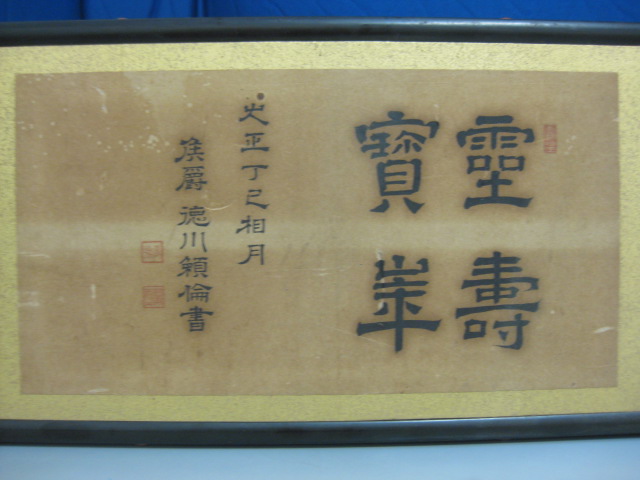 靈壽
寶崋
大正丁巳相月
侯爵 德川頼倫書